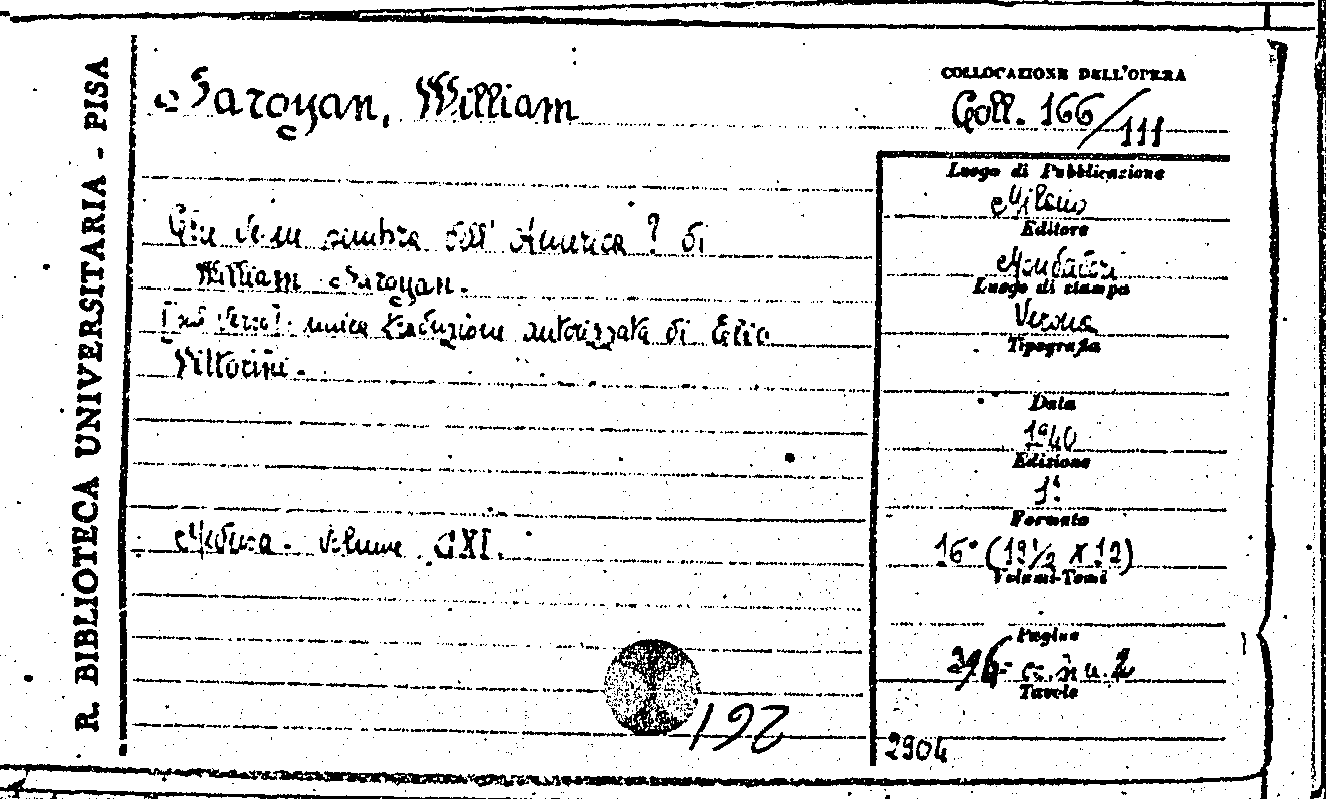 R. BIBLIOTECA UNIVERSITARIA - PISA
Saroyan, William
COLLOCAZIONE DELL'OPERA
Coll. 166/111
Che ve ne sembra dell' America? di
William Saroyan.
unica traduzione autorizzata di Elio
Vittorini.
Medusa. Volume CXI.
192
Luogo di Pubblicazione
Milano
Editore
Mondadori
Luogo di stampa
Verona
Tipografia
Data
1940
Edizione
1ª
Formato
16° (19½ X 12)
Volumi-Tomi
Pagine
c. n. n. 2
Tavole
2904